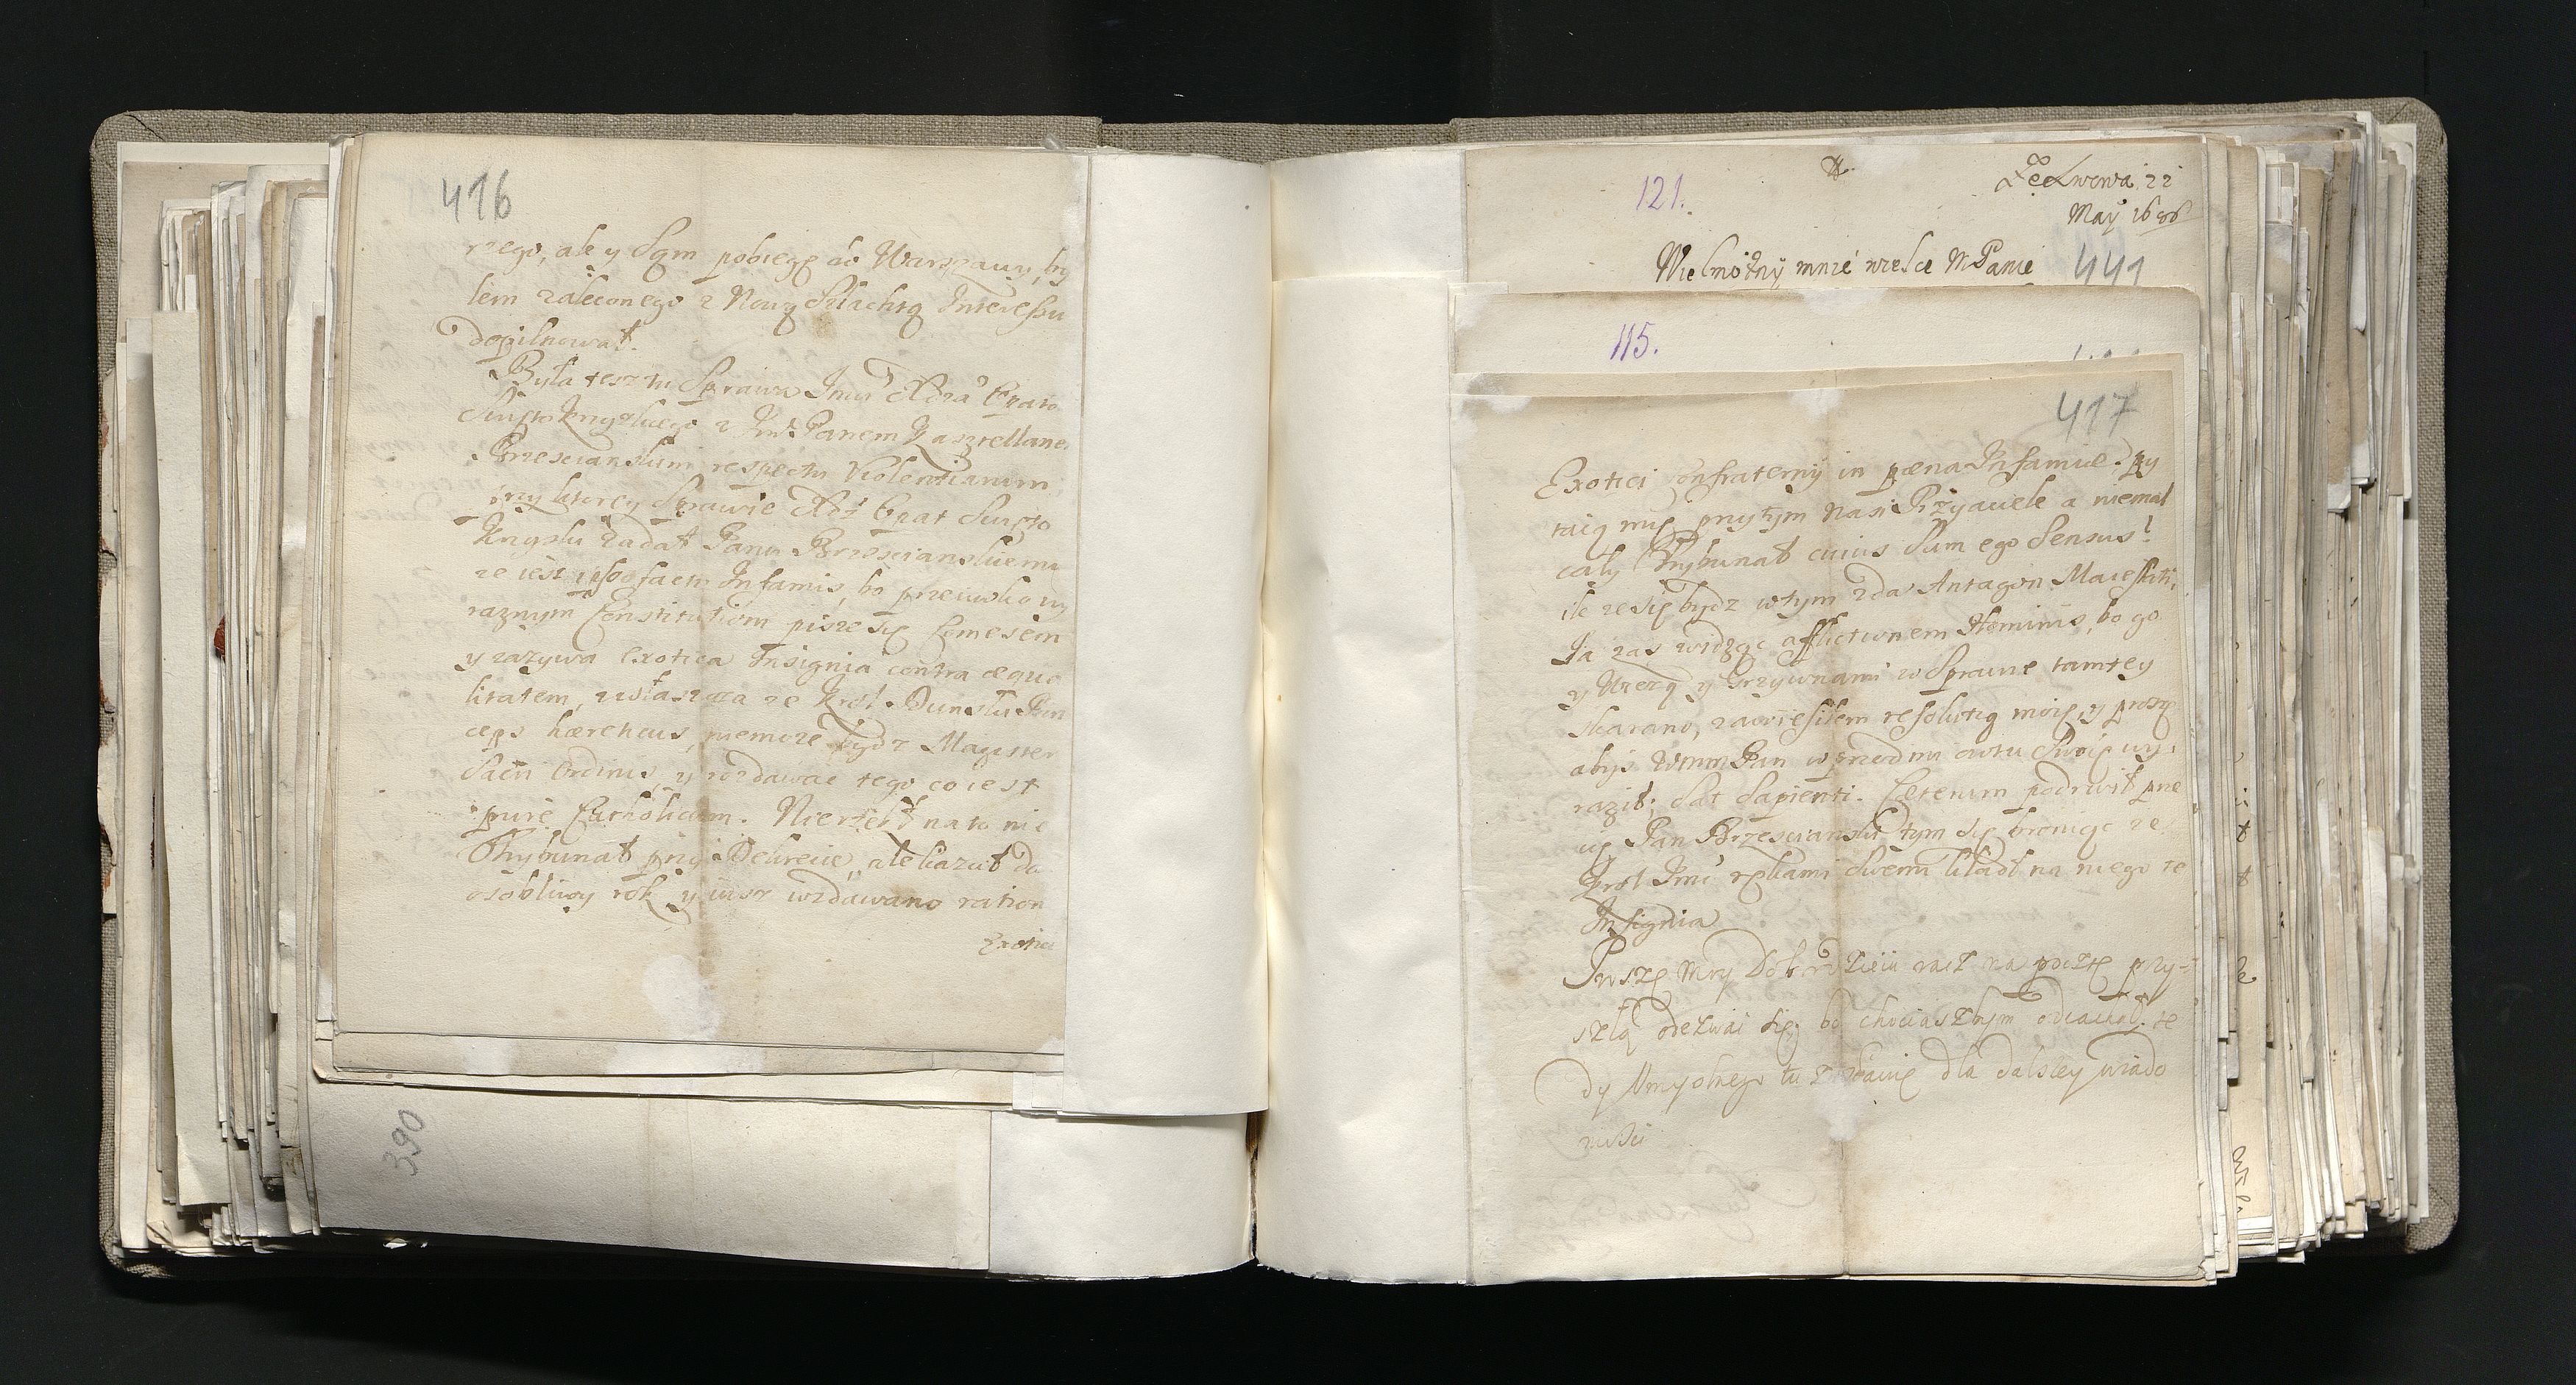 416
rzego, ale y Sąm pobiegę do Warszawy, by
lem zaleconego z Nową Szlachtą Interessu
dopilnował.
Była tesz tu Sprawa Jmci Xdza Opata
Swiętokrzyskiego z Jmć Panem Kasztellane
Brzescianskim respectu Violentiarum
przy ktorey Sprawie Xdz Opat Swięto
Krzyski zadał Panu Brzescianskiemu
ze iest ipso facto Infamis, bo przeciwko wy
raznym Constitutiom pisze się Comesem
y zazywa exotica Insignia contra æqua
litatem, zwłaszcza ze Krol Dunski Prin
ceps hæreticus, niemoze bydz Magister
Sacri Ordinis, y rozdawac tego co iest
pure Catholicum. Nierzekł na to nic
Trybunał przy Dekrecie, ale kazał do
osobliwy rok y iusz wzdawano ration
Exotici
121.
Ze Lwowa 22
May 1686
Wielmożny mnie wielce MPanie
441
115.
417
Exotici Confraterny in pœna Infamiæ. Py
taią mię przytym nasi Przyaciele a niemal
cały Trybunał cuius Sum ego Sensus?
ile ze się bydz w tym zda Antagon. Maiestati,
Ja zas widząc afflictionem Hominis, bo go
y Wiezą y Grzywnami w Sprawie tamtey
skarano, zawiesiłem resolutią moię, y proszę
abyś WMM Pan wprzod mi owtu Swoię wy
raził; Sat Sapienti. Cæterum podrwił prze
cię Pan Brzescianski tym się broniąc ze
Krol Jmć rękami Swemi kładł na niego te
Insignia
Proszę Moy Dobrodzieiu racz na pocztę przy-
szłą odezwać się, bo chociaszbym odiachał te
dy Umyslnego tu zostawię dla dalszey wiado
mosci
390